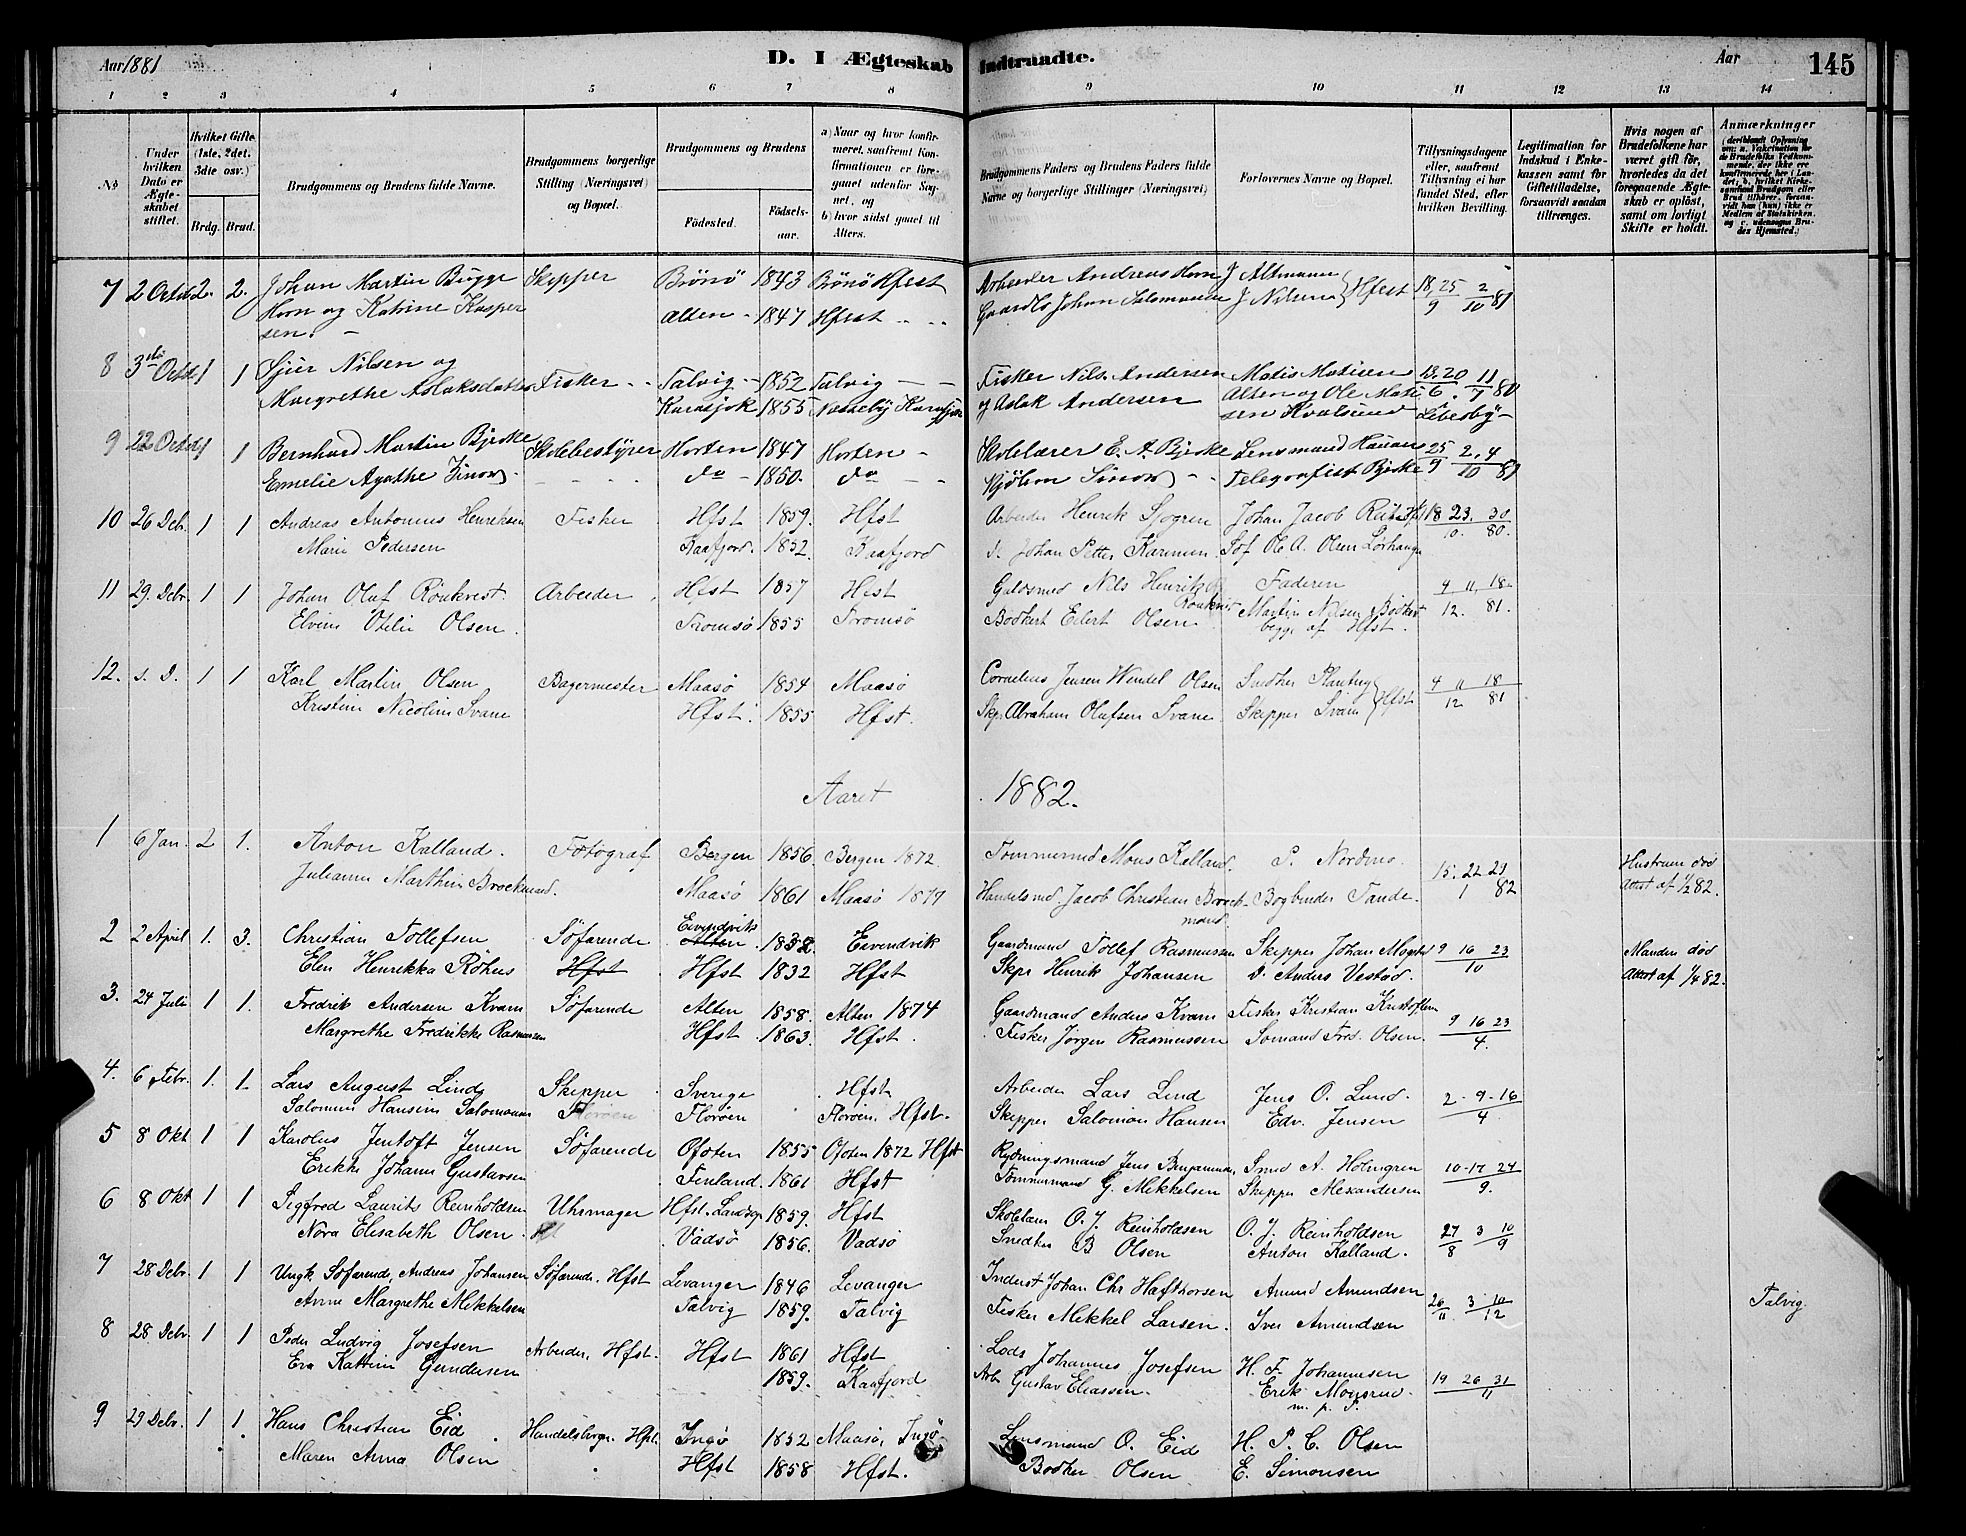 Aar 1881 D. I Ægteskab Indtraadte. Aar 145
1 2 3 4 5 6 7 8 9 10 11 12 13 14
No
Under hvilken Dato er Ægteskabet stiftet.
Hvilket Gifte. (1ste, 2det, 3die osv.)
Brdg. Brud.
Brudgommens og Brudens fulde Navne.
Brudgommens borgerlige Stilling (Næringsvei) og Bopæl.
Brudgommens og Brudens
Födested. Födselsaar.
a) Naar og hvor konfirmeret, saafremt Konfirmationen er foregaaet udenfor Sognet, og
b) hvor sidst gaaet til Alters.
Brudgommens Faders og Brudens Faders fulde Navne og borgerlige Stillinger (Næringsvei)
Forlovernes Navne og Bopæl.
Tillysningsdagene eller, saafremt Tillysning ei har fundet Sted, efter hvilken Bevilling.
Legitimation for Indskud i Enkekassen samt for Giftetilladelse, forsaavidt saadan tiltrænges.
Hvis nogen af Brudefolkene har været gift för, hvorledes da det foregaaende Ægteskab er oplöst, samt om lovligt Skifte er holdt.
Anmærkninger
7 2 Octb 2. 2. Johan Martin Bugge Skipper Brönö 1843 Brönö Hfest Arbeider Andreas Horn J Altmann
Horn og Katrine Kasper Alten - 1847 Hfest Gaardb Johan Salomonsen J Nilsen Hfest 18, 25 2
sen. - 9 10 81
8 3die Octb 1 1 Sjur Nilsen og
Margrethe Aslaksdatter Fisker Talvig 1852 Talvig Fisker Nils Andersen Matis Matisen 13. 20 11
Karasjok 1855 Nesseby Karasjok J Aslak Andersen Alten og Ole Mati 6 7 80
sen Kvalsund Lebesby -
9 22 Octb 1 1 Bernhard Martin Bjerke Skolebestyrer Horten 1847 Horten - Skolelærer E. A. Bjerke Lensmand Hauan 25 2, 4
Emelie Agathe Zinow do - 1850. do Telegrafist Bjerke 9 10 81
10 26 Debr. 1 1 Andreas Antonius Henriksen Fisker Hfst 1859. Hfst Arbeider Henrik Sjogren Johan Jacob 18 23. 30
Marie Pedersen Kaafjord. 1852. Kaafjord Johan Petter Karinen. Söf Ole A. Olsen 10. 80.
11 29. Debr. 1 1 Johan Oluf Rönkvist. Arbeider Hfst 1857 Hfst Guldsmed Nils Henrik Rönkvist Faderen 4 11, 18
Elvine Otelie Olsen. Tromsö 1855 Tromsö Bödkert Eilert Olsen Martin Nilsen Bödkert 12. 81.
begge af Hfst.
12. s. D. 1 1 Karl Martin Olsen Bagermester Maasö 1854 Maasö Cornelius Jensen Wendel Olsen Snedker 4 11 18
Kristine Nicoline Svane Hfst. 1855 Hfst. Skp. Abraham Olufsen Svane. Skipper Svane Hfst 12 81
Aaret 1882.
1 6 Jan. 2 1. Anton Kalland. Fotograf Bergen 1856. Bergen 1872. Tömmermd Mons Kalland. P. Nordmo. 15. 22 29 Hustruen död
Julianne Marthine Brockmand. Maasö 1861 Maasö 1879 Handelsmd. Jacob Christian Brockmand. Bogbinder Tande. 1 82 Attest af 1/2 82.
2 2 April 1. 3. Christian Tollefsen Söfarende Eivendvik 1838. Eivendvik Gaardmand Tollef Rasmussen Skipper Johan 9 16 23 Manden död
Elen Henrikka Röhus Hfst 1832 Hfst Skpr Henrik Johansen Do. Anders Vestad. 10 Attest af 1/4 82.
3. 24 Juli 1 1. Fredrik Andersen Kvam Söfarende Alten 1858. Alten 1874 Gaardmand Anders Kvam Fisker Kristian Kristoffersen
Margrethe Fredrikke Rasmussen Hfst 1863. Hfst. Fisker Jörgen Rasmussen Sömand Fred. Olsen. 9 16 23
4.
4. 6 Febr. 1. 1. Lars August Lind Skipper Sverige Hfst Arbeider Lars Lind Jens O. Lund. 2 - 9 - 16
Salomine Hansine Salomonsen Floröen Floröen, Hfst. Skipper Salomon Hansen Edv. Jensen 4
5 8 Okt 1 1 Karolus Jentoft Jensen Söfarende Ofoten 1855 Ofoten 1872 Hfst Rydningsmand Jens Benjaminsen Smed A. Holmgren 10 - 17 24
Erikka Johanne Gustavsen Finland. 1861 Hfst Tömmermand G. Mikkelsen Skipper Alexandersen 9.
6 8 Okt 1 1 Sigfred Laurits Reinholdsen Uhrmager Hfst. Landsogn 1859. Hfst Skolelærer O. J. Reinholdsen O. J. Reinholdsen 27 3 10
Nora Elisabeth Olsen. Vadsö 1856. Vadsö Snedker B Olsen Anton Kalland. 8 9
7 28 Debr. 1 1 Ungk. Söfarende, Andreas Johansen Söfarende. Hfst Levanger 1846 Levanger Inderst Johan Chr Hafthorsen Amund Amundsen 26 3 10
Anne Margrethe Mikkelsen Talvig 1859. Talvig Fisker Mikkel Larsen. Iver Amundsen 11. 12 Talvig.
8 28 Debr. 1 1 Peder Ludvig Josefsen Arbeider. Hfst. Hfst 1861 Hfst Lods Johannes Josefsen H. F. Johannesen
Eva Kattrine Gundersen 1859. Kaafjord Arb. Gustav Eliassen. Erik 19 26 31
m. p. P. 11
9 29 Debr. 1 1. Hans Christian Eid Handelsbrgr. Hfst. Ingö 1852 Maasö, Ingö Lensmand O. Eid H. P. C. Olsen
Maren Anna Olsen Hfst 1858 Hfst. Bödker Olsen E. Simonsen